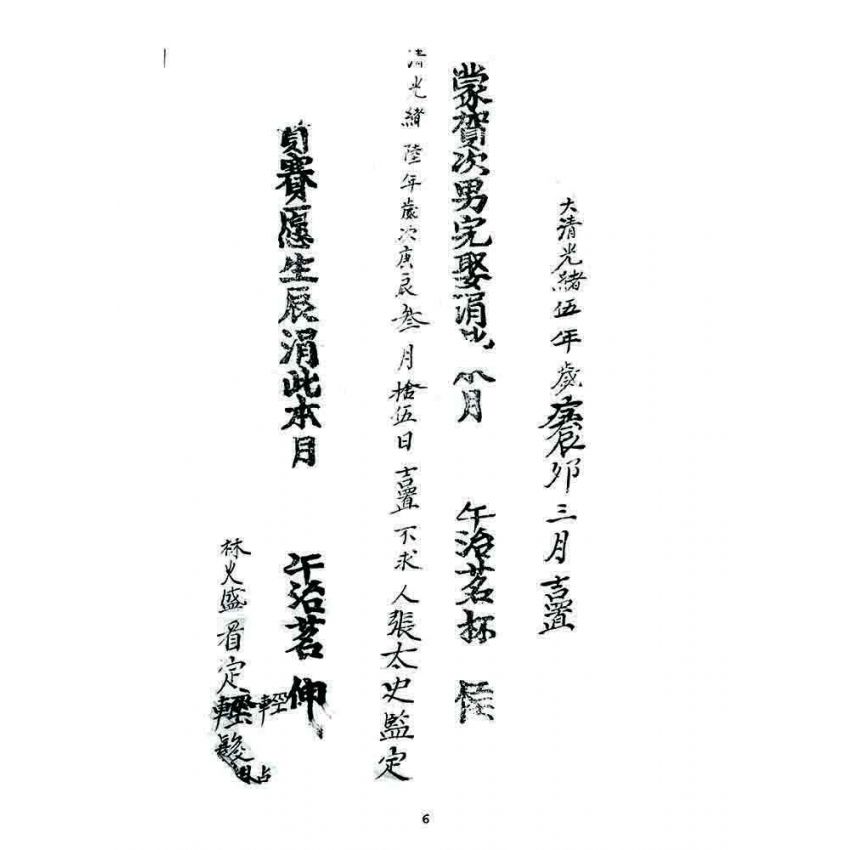 大清光緒伍年歲卯三月吉置
蒙賀次男完娶涓此本月 午治茗杯
清光緒陸年歲次庚辰叁月拾伍日吉置不求人張太史監定
賽愿生辰涓此本月 午治茗伸
林火盛看定輕
輕
6